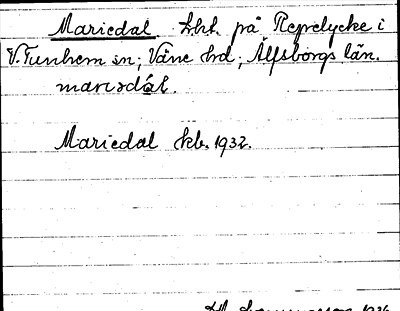 Mariedal. Lht. på Reprelycke i
V. Tunhem sn; Väne hd; Älfsborgs län.
marıədál.
Mariedal kb. 1932.
1936